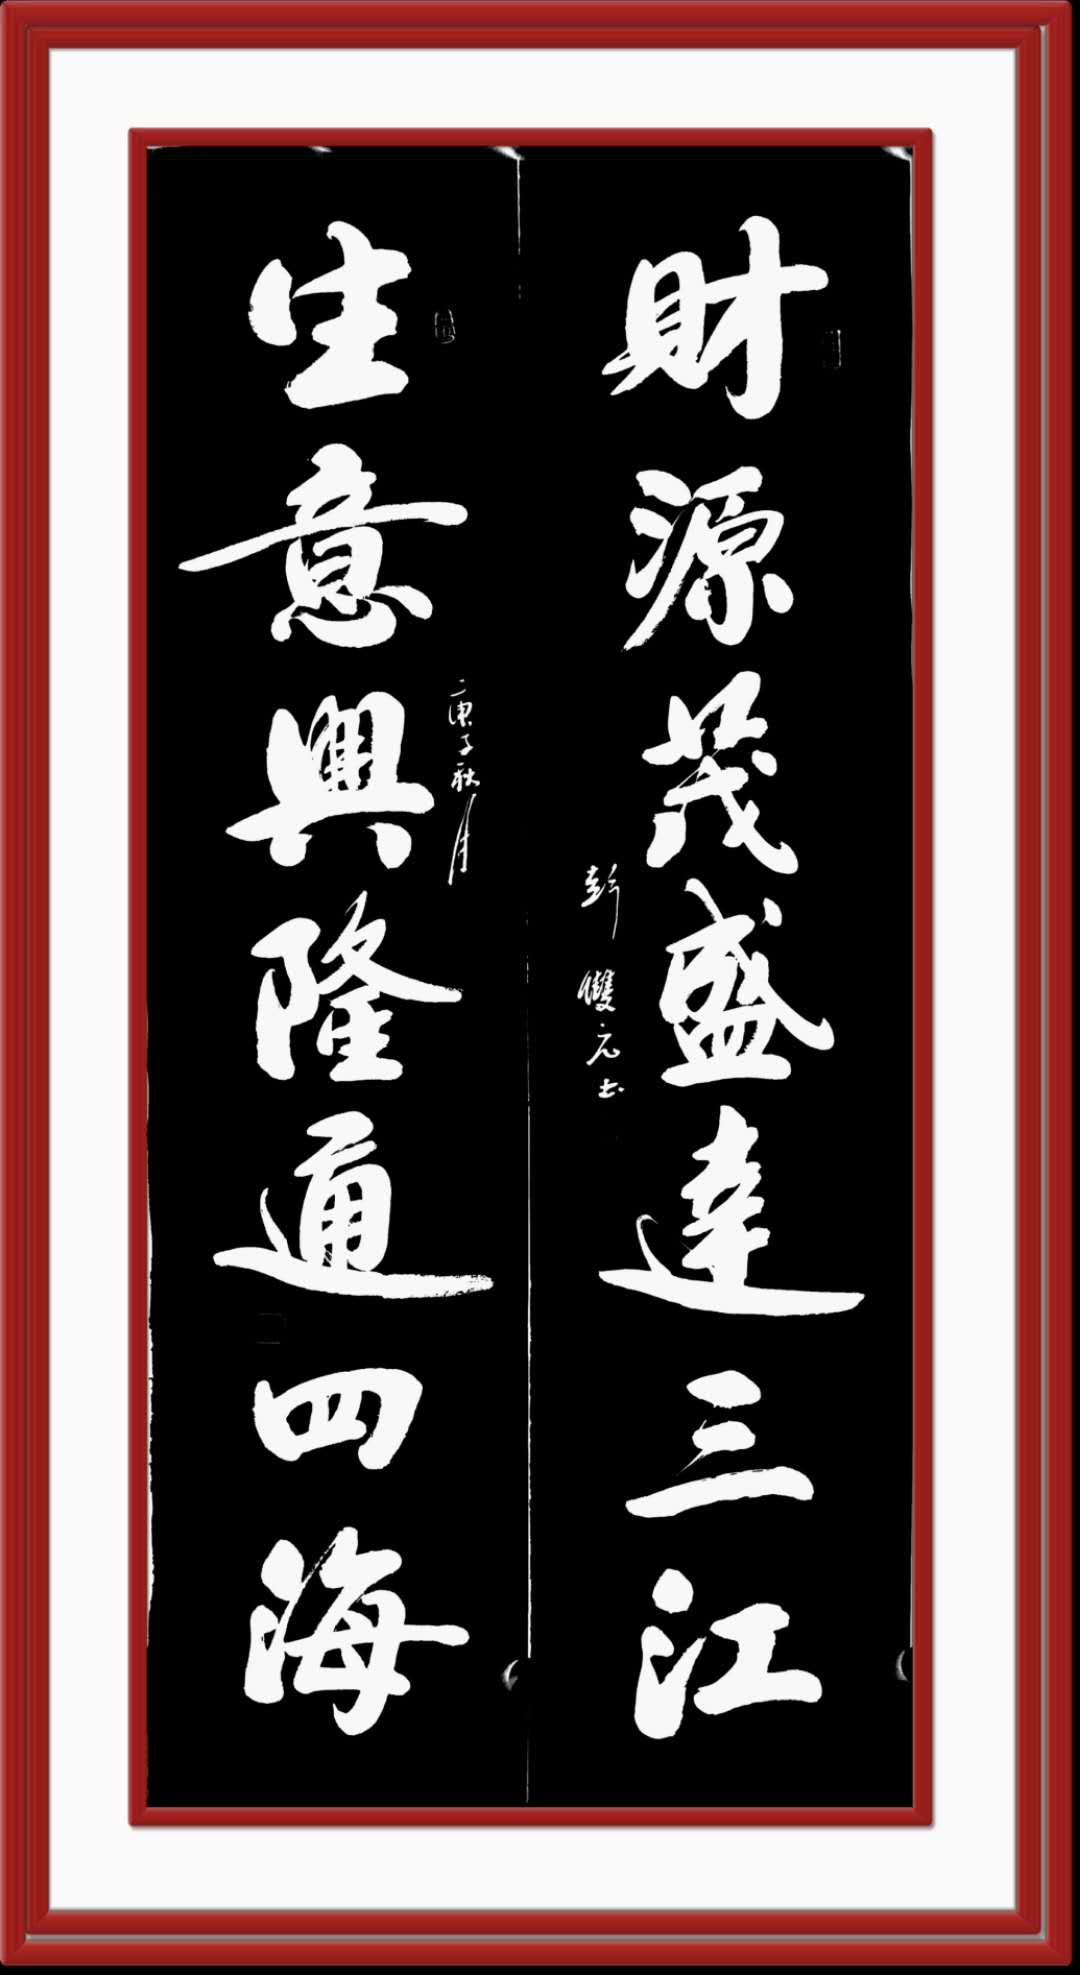 財源茂盛達三江
生意興隆通四海
二庚子秋月
彭雙元书